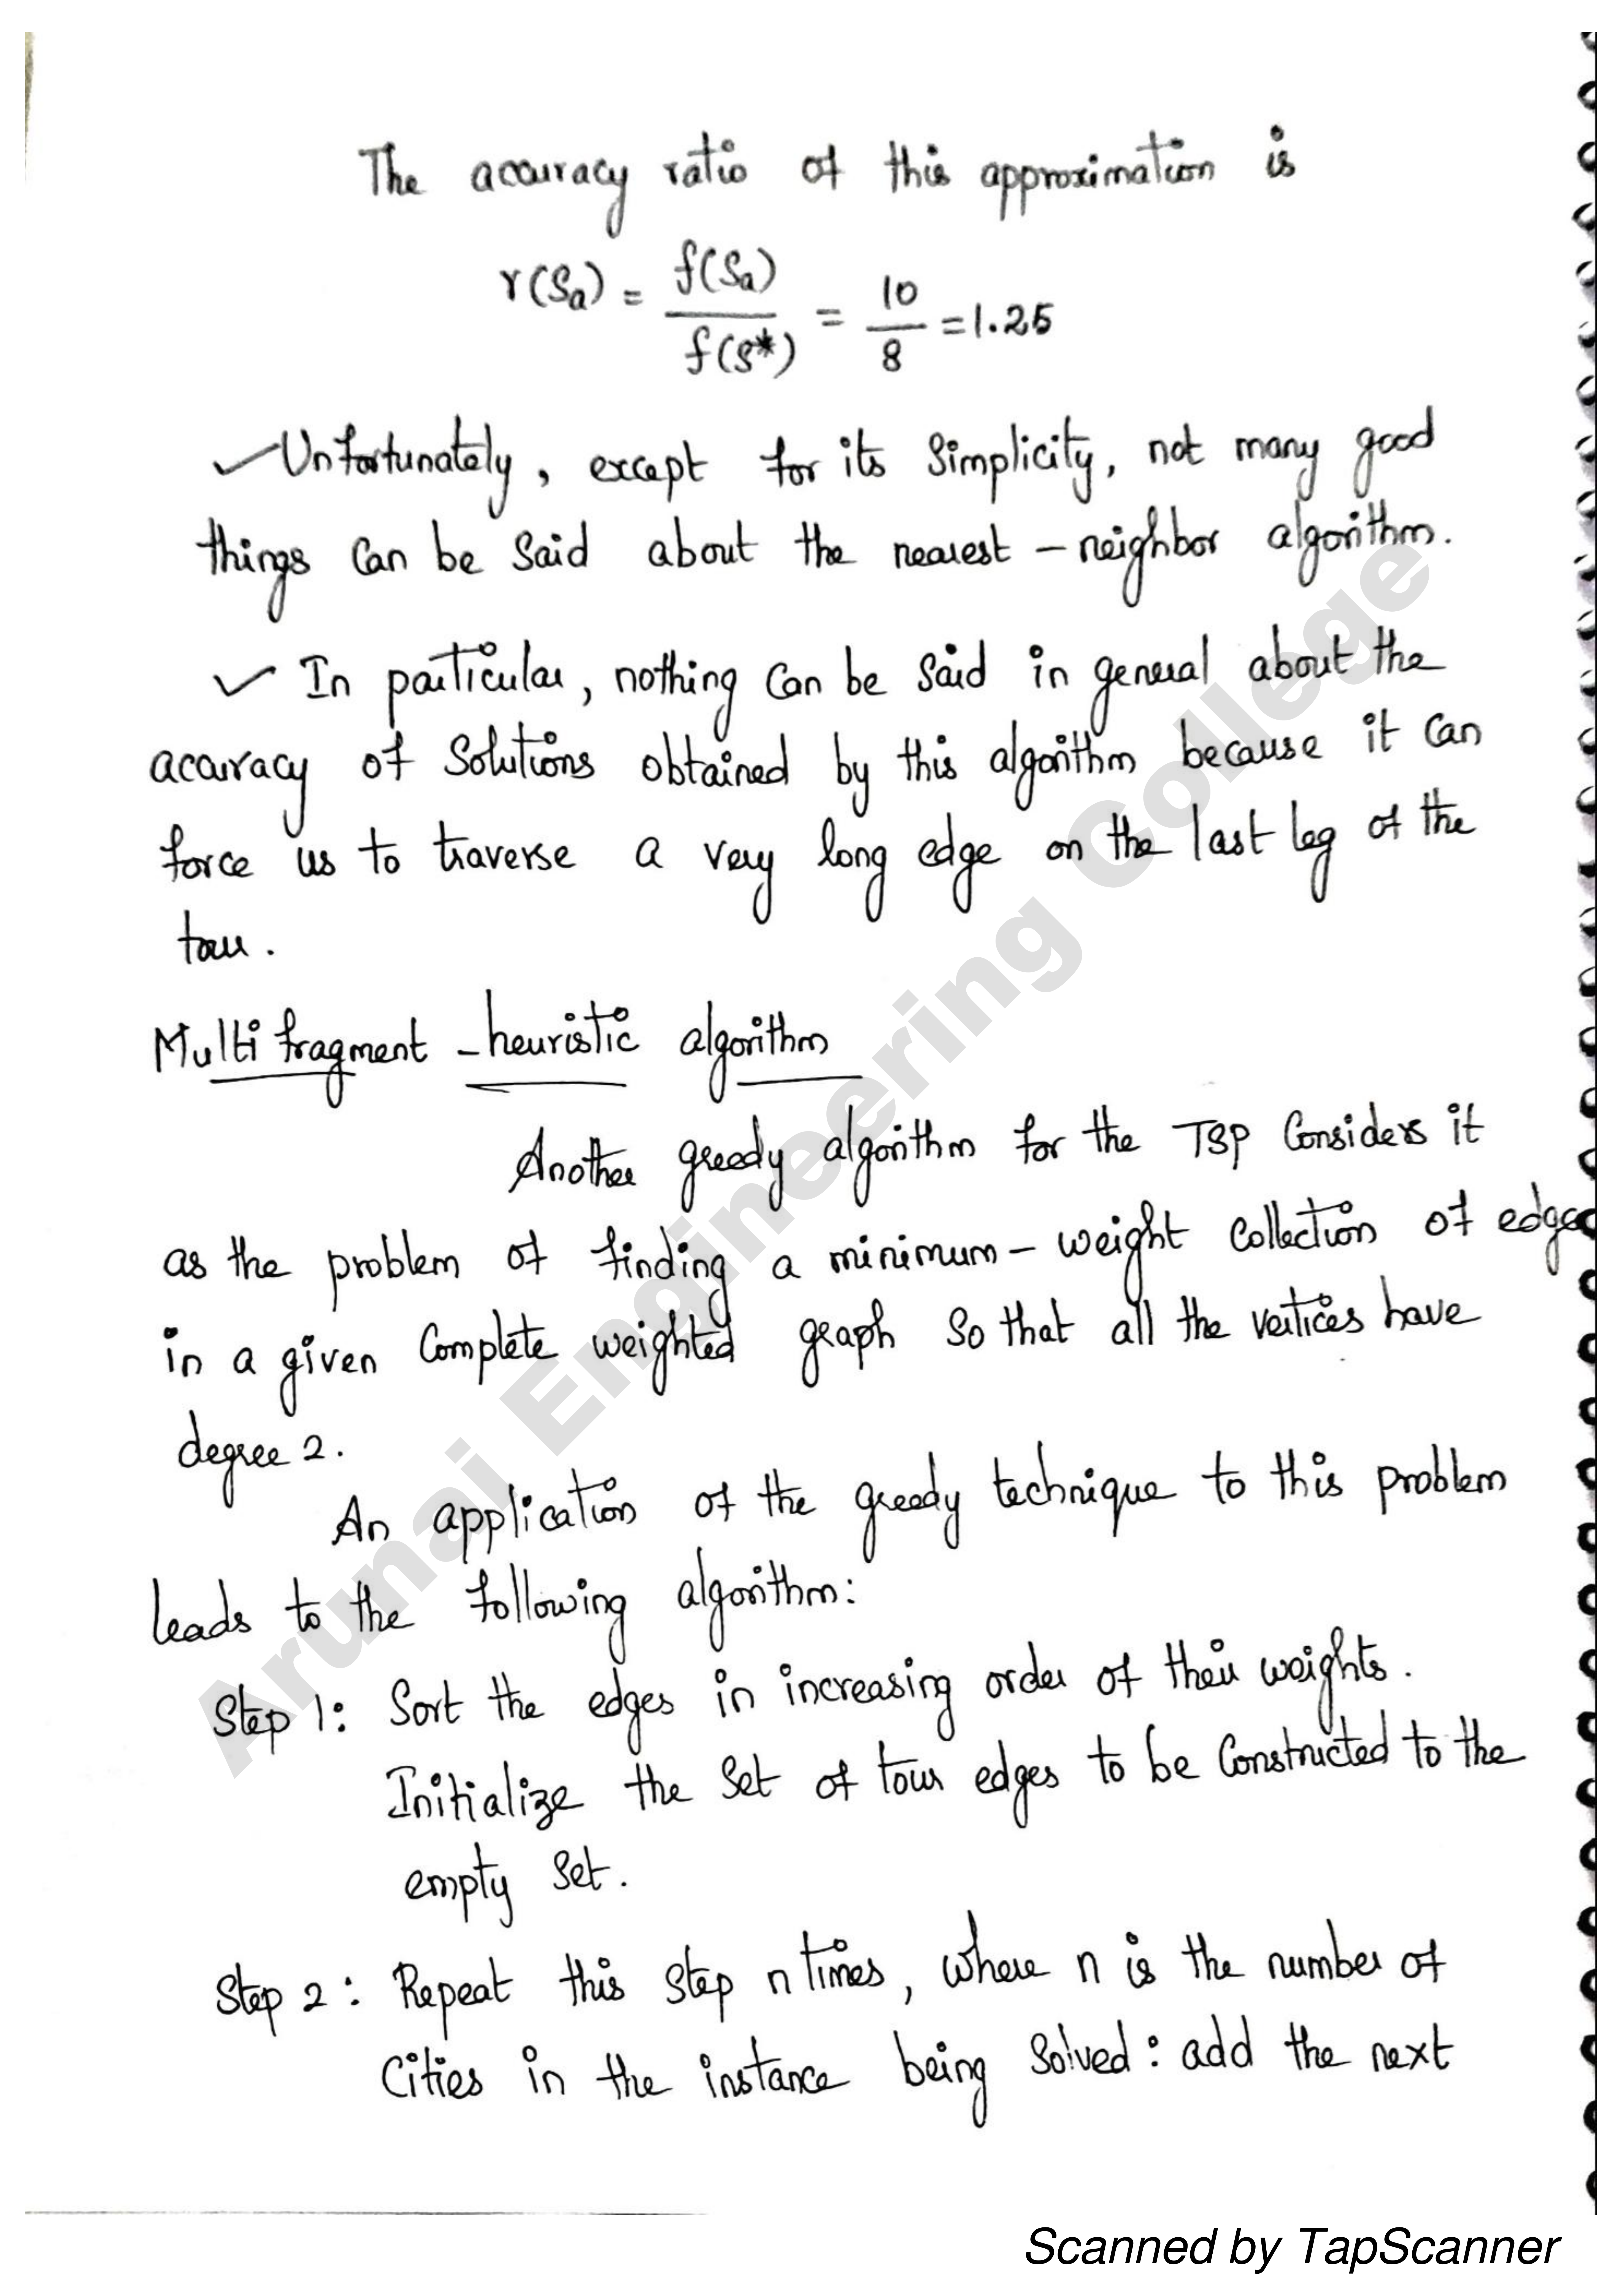 The accuracy ratio of this approximation is
r(Sa) = f(Sa) / f(S*) = 10 / 8 = 1.25
✓ Unfortunately, except for its Simplicity, not many good
things can be said about the nearest - neighbor algorithm.
✓ In particular, nothing can be said in general about the
accuracy of Solutions obtained by this algorithm because it can
force us to traverse a very long edge on the last leg of the
tour.
Multi fragment - heuristic algorithm
Another greedy algorithm for the TSP Considers it
as the problem of finding a minimum - weight collection of edges
in a given Complete weighted graph so that all the vertices have
degree 2.
An application of the greedy technique to this problem
leads to the following algorithm:
Step 1: Sort the edges in increasing order of their weights.
Initialize the set of tour edges to be Constructed to the
empty set.
Step 2: Repeat this step n times, where n is the number of
Cities in the instance being Solved: add the next
Arunai Engineering College
Scanned by TapScanner